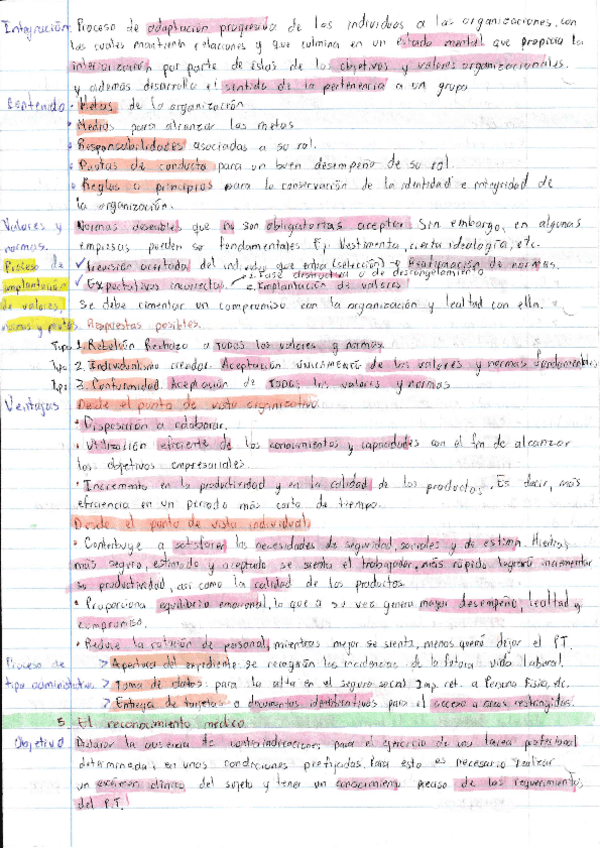 Integración. Proceso de adaptación progresiva de los individuos a las organizaciones, con
las cuales mantienen relaciones y que culmina en un estado mental que propicia la
interiorización por parte de éstas de los objetivos y valores organizacionales.
y además desarrolla el sentido de la pertenencia a un grupo
Contenido • Metas de la organización
• Medios para alcanzar las metas
• Responsabilidades asociadas a su rol.
• Pautas de conducta para un buen desempeño de su rol.
• Reglas o principios para la conservación de la identidad e integridad de
la organización.
Valores y Normas deseables que no son obligatorias aceptar. Sin embargo, en algunas
normas. empresas pueden ser fundamentales Ej. Vestimenta, cierta ideología, etc.
Proceso de ✓ Previsión acertada del individuo que entra (selección) → Reafirmación de normas.
implantación ✓ Expectativas incorrectas 1. Fase destructiva o de descongelamiento
2. Implantación de valores
de valores, Se debe cimentar un compromiso con la organización y lealtad con ella.
normas y pautas. Respuestas posibles.
Tipo 1. Rebelión Rechazo a TODOS los valores y normas
Tipo 2. Individualismo creador. Aceptación ÚNICAMENTE de los valores y normas fundamentales
Tipo 3. Conformidad. Aceptación de TODOS los valores y normas
Ventajas Desde el punto de vista organizativo.
• Disposición a colaborar.
• Utilización eficiente de los conocimientos y capacidades con el fin de alcanzar
los objetivos empresariales.
• Incremento en la productividad y en la calidad de los productos. Es decir, más
eficiencia en un período más corto de tiempo.
Desde el punto de vista individual.
• Contribuye a satisfacer las necesidades de seguridad, sociales y de estima. Mientras
más seguro, estimado y aceptado se sienta el trabajador, más rápido logrará incrementar
su productividad, así como la calidad de los productos.
• Proporciona equilibrio emocional, lo que a su vez genera mayor desempeño, lealtad y
compromiso.
• Reduce la rotación de personal, mientras mejor se sienta, menos querrá dejar el P.T.
Proceso de > Apertura del expediente. se recogerán las incidencias de la futura vida laboral.
tipo administrativo > Toma de datos para la alta en el seguro social Imp. ret. a Persona Física, etc.
> Entrega de tarjetas o documentos identificativos para el acceso a áreas restringidas.
5. El reconocimiento médico
Objetivo la ausencia de contraindicaciones para el ejercicio de una tarea profesional
determinada, en unas condiciones prefijadas. Para esto es necesario realizar
un exámen clínico del sujeto y tener un conocimiento preciso de los requerimientos
del P.T.